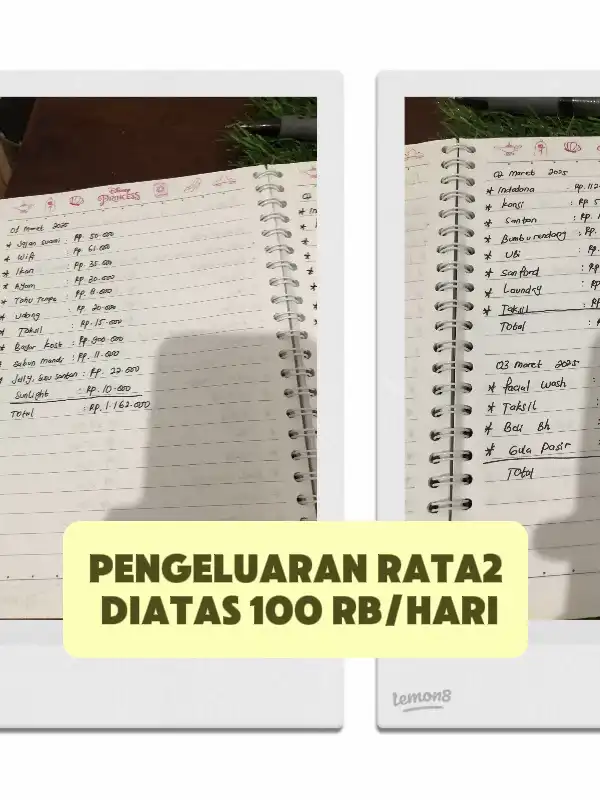 Disney
PRINCESS
01 Maret 2025
* Jajan suami : Rp. 50.000
* Wifi : Rp. 61.000
* Ikan : Rp. 35.000
* Ayam : Rp. 20.000
* Tahu Tempe : Rp. 8.000
* Udang : Rp 20.000
* Taksil : Rp. 15.000
* Bayar Kost : Rp 900.000
* Sabun mandi : Rp. 11.000
* Jelly, Susu santan : Rp. 22.000
Sunlight : Rp. 10.000
Total : Rp. 1.162.000
02 Maret 2025
* Indodana : Rp. 112
* Kongsi : Rp 5
* Santan : Rp. 1
* Bumbu rendang : Rp.
* Ubi : Rp.
* Sanford : Rp
* Laundry : Rp
* Taksil : Rp
Total :
03 Maret 2025
* Facial wash :
* Taksil :
* Beli Bh :
* Gula Pasir :
Total
PENGELUARAN RATA2
DIATAS 100 RB/HARI
lemon8